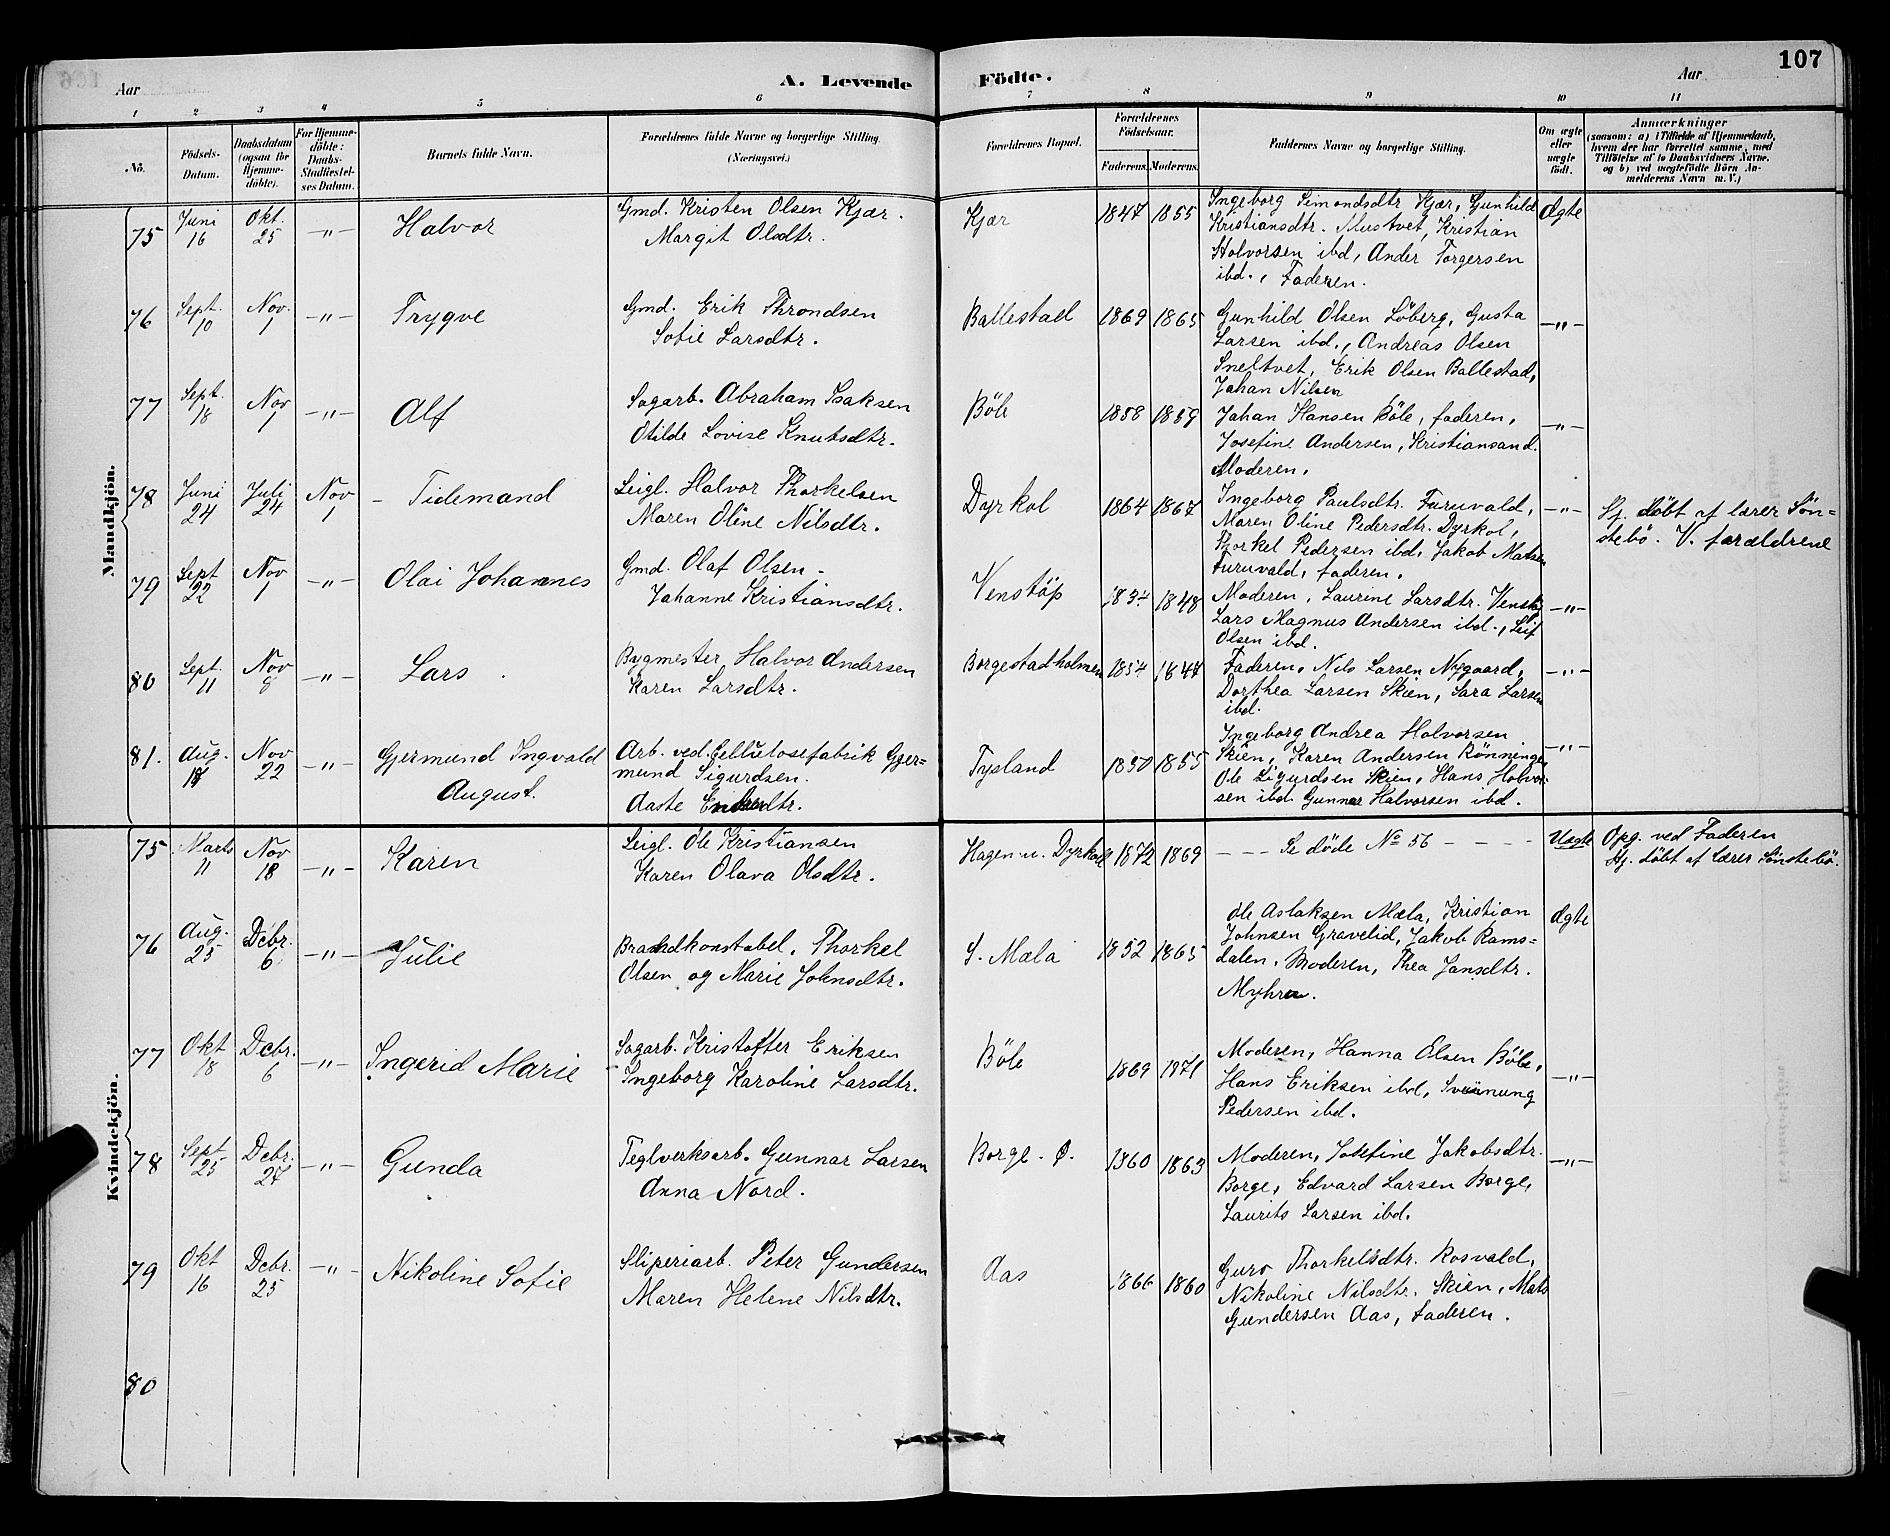 107
Aar
A. Levende
Födte.
Aar
1 2 3 4 5 6 7 8 9 10 11
No.
Födsels-
Datum.
Daabsdatum
(ogsaa for
Hjemme-
döbte).
For Hjemme-
döbte:
Daabs-
Stadfæstel-
ses Datum.
Barnets fulde Navn.
Forældrenes fulde Navne og borgerlige Stilling.
(Næringsvei.)
Forældrenes Bopæl.
Forældrenes
Födselsaar.
Faderens. Moderens.
Faddernes Navne og borgerlige Stilling.
Om ægte
eller
uægte
födt.
Anmærkninger
(saasom: a) i Tilfælde af Hjemmedaab,
hvem der har forrettet samme, med
Tilföielse af to Daabsvidners Navne.
og b) ved uægtefödte Börn An-
melderens Navn m. V.)
Mandkjön.
75
Juni
16
Okt.
25
-"-
Halvor
Gmd. Kristen Olsen Kjær.
Margit Olsdtr.
Kjær
1847 1855
Ingeborg Simondsdtr Kjær, Gunhild
Kristiansdtr. Mustvet, Kristian
Halvorsen ibd, Ander Torgersen
ibd., Faderen.
Ægte
76
Sept.
10
Nov.
1
-"-
Trygve
Gmd. Erik Throndsen
Sofie Larsdtr.
Ballestad
1869 1865
Gunhild Olsen Löberg, Gusta
Larsen ibd., Andreas Olsen
Sneltvet, Erik Olsen Ballestad,
Johan Nilsen
-"-
77
Sept.
18
Nov
1
-"-
Alf
Sagarb. Abraham Isaksen
Otilde Lovise Knutsdtr.
Böle
1858 1859
Johan Hansen Böle, faderen,
Josefine Andersen, Kristiansand.
Moderen.
-"-
78
Juni
24
Juli
24
Nov
1
- Tidemand
Leigl. Halvor Thorkelsen
Maren Oline Nilsdtr.
Dyrkol
1864 1867
Ingeborg Paulsdtr. Furuvald,
Maren Oline Pedersdtr. Dyrkol,
Thorkel Pedersen ibd, Jakob Matsen
Furuvald, faderen.
-"-
Hj. döbt af lærer Sön=
stebö. V. forældrene
79
Sept
22
Nov
1
-"-
Olai Johannes
Gmd. Olaf Olsen -
Johanne Kristiansdtr.
Venstöp
1834 1848
Moderen, Laurine Larsdtr. Venstöp
Lars Magnus Andersen ibd., Leif
Olsen ibd.
-"-
80
Sept.
11
Nov
8
-"-
Lars
Bygmester Halvor Andersen
Karen Larsdtr.
Borgestadholmen
1854 1847
Faderen, Nils Larsen Nygaard,
Dorthea Larsen Skien, Sara Larsen
ibd.
-"-
81.
Aug.
Nov
22
-"-
Gjermund Ingvald
August.
Arb. ved Cellulosefabrik Gjer=
mund Sigurdsen.
Aaste
Tysland
1850 1855
Ingeborg Andrea Halvorsen
Skien, Karen Andersen Rönningen
Ole Sigurdsen Skien, Hans Halvor-
sen ibd. Gunnar Halvorsen ibd.
-"-
Kvindekjön.
75
Marts
11
Nov
18
-"-
Karen
Leigl. Ole Kristiansen
Karen Olava Olsdtr.
Hagen u. Dyrkol
1872 1869
- - - Se döde No 56 - - - -
Uægte
Opg. ved Faderen
Hj. döbt af lærer Sönstebö.
76
Aug.
25
Dcbr.
6
-"-
Julie
Brandkonstabel. Thorkel
Olsen og Marie Johnsdtr.
S. Mæla
1852 1865
Ole Aslaksen Mæla, Kristian
Johnsen Gravelid, Jakob Rams=
dalen. Moderen, Thea Jansdtr.
Myhra.
Ægte
77
Okt
18
Dcbr.
6
-"-
Ingerid Marie
Sagarb. Kristoffer Eriksen
Ingeborg Karoline Larsdtr.
Böle
1869 1971
Moderen, Hanna Olsen Böle,
Hans Eriksen ibd, Sveinung
Pedersen ibd.
-"-
78
Sept.
25
Dcbr.
27
-"-
Gunda
Teglverksarb. Gunnar Larsen
Anna Nord.
Borge - Ö.
1860 1863
Moderen, Josefine Jakobsdtr.
Borge, Edvard Larsen Borge,
Laurits Larsen ibd.
-"-
79
Okt
16
Dcbr.
25
-"-
Nikoline Sofie
Sliperiarb. Peter Gundersen
Maren Helene Nilsdtr.
Aas
1866 1860
Guro Thorkelsdtr. Rosvald,
Nikoline Nilsdtr. Skien, Mats
Gundersen Aas, Faderen.
80